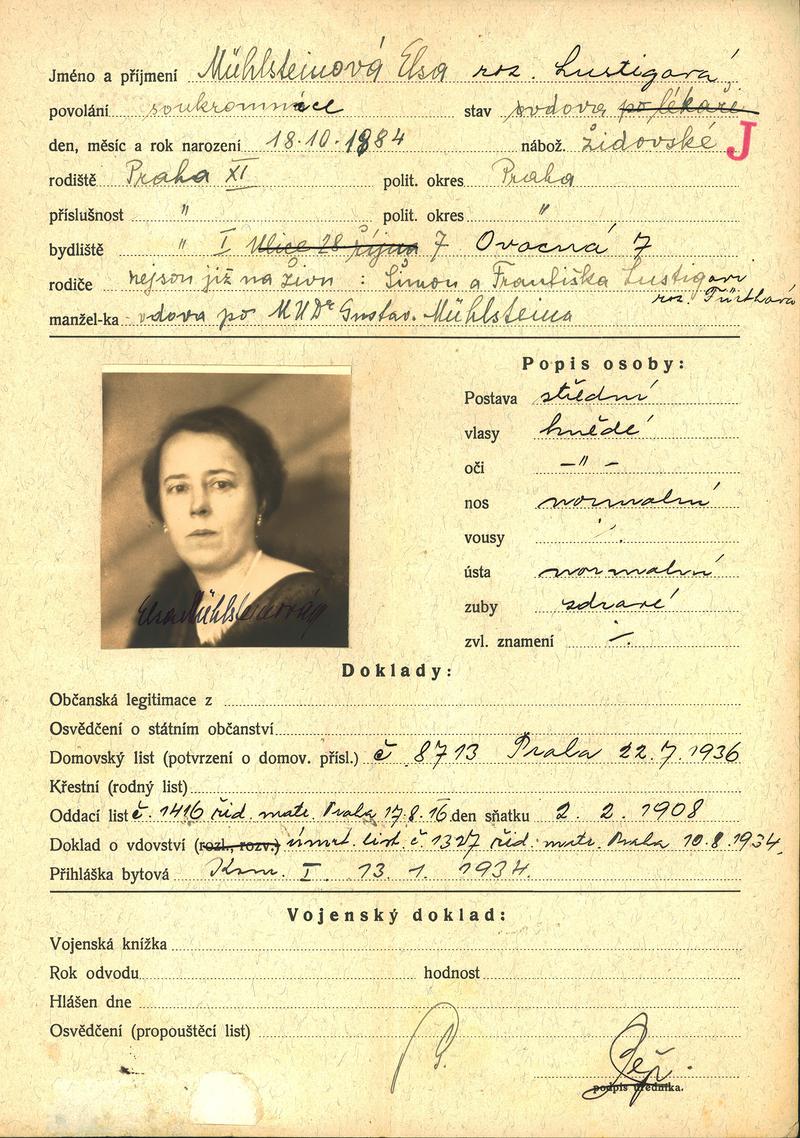 Jméno a příjmení Mühlsteinová Elsa roz. Lustigová
povolání soukromnice stav vdova po lékaři
den, měsíc a rok narození 18.10.1884 nábož. židovské J
rodiště Praha XI polit. okres Praha
příslušnost " polit. okres "
bydliště " I Ulice 28 října 7 Ovocná 7
rodiče nejsou již na živu : Šimon a Františka Lustigovi
roz. Fürthová
manžel-ka vdova po MUDr Gustav. Mühlsteina
Popis osoby:
Postava střední
vlasy hnědé
oči – " –
nos normalní
vousy ·/.
ústa normalní
zuby zdravé
zvl. znamení ·/.
Elsa Mühlsteinová
Doklady:
Občanská legitimace z
Osvědčení o státním občanství
Domovský list (potvrzení o domov. přísl.) č 8713 Praha 22.7.1936
Křestní (rodný list)
Oddací list č. 1416 žid. matr. Praha 17.8.16 den sňatku 2. 2. 1908
Doklad o vdovství (rozl., rozv.) úmrt. list. č 1327 žid. matr. Praha 10.8.1934.
Přihláška bytová Kom. I. 13. 1. 1934.
Vojenský doklad:
Vojenská knížka
Rok odvodu hodnost
Hlášen dne
Osvědčení (propouštěcí list)
podpis úředníka.